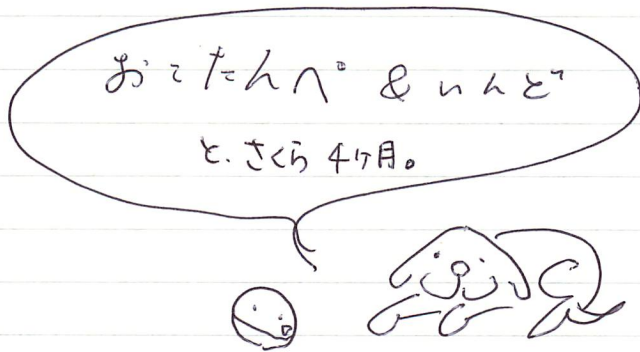 おこたんぺ & いんど
と、さくら 4ヶ月。